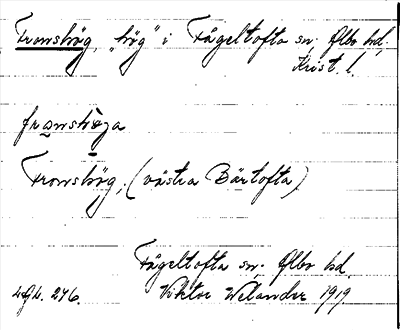 Tronshög, "hög" i Fågeltofta sn. Albo hd.
Krist. l.
Tronshög, (västra Bärtofta)
Fågeltofta sn. Albo hd.
Viktor Welander 1919